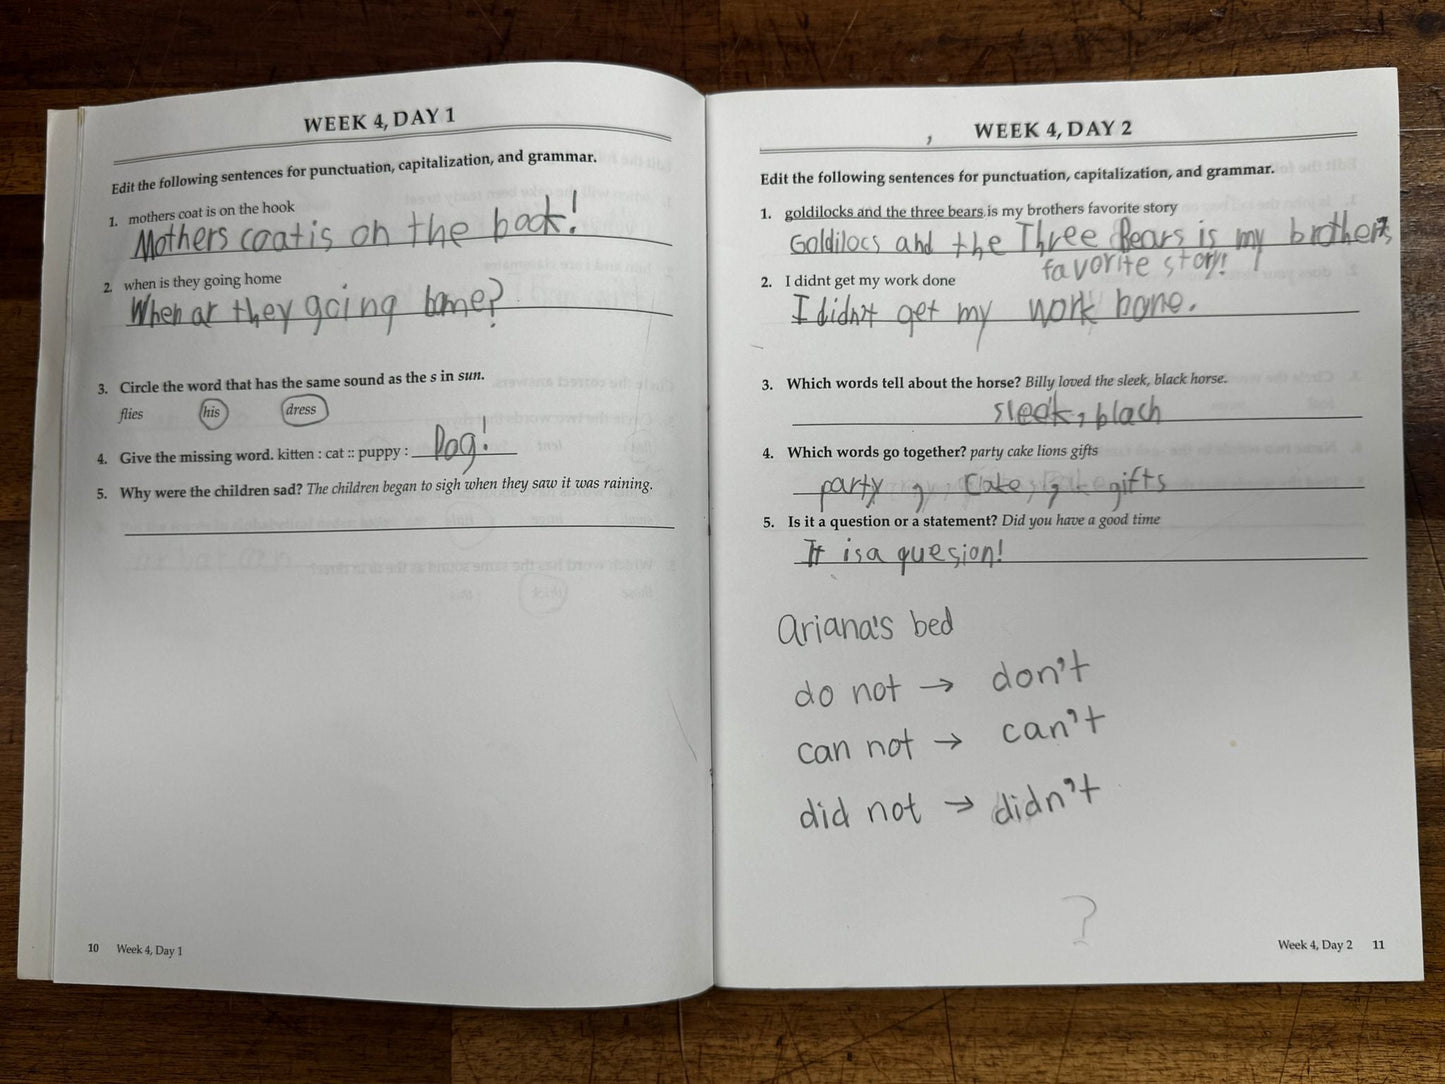 WEEK 4, DAY 1
Edit the following sentences for punctuation, capitalization, and grammar.
1. mothers coat is on the hook
Mothers coat is on the book!
2. when is they going home
When ar they going bome?
3. Circle the word that has the same sound as the s in sun.
flies his dress
4. Give the missing word. kitten : cat :: puppy : Dog!
5. Why were the children sad? The children began to sigh when they saw it was raining.
10 Week 4, Day 1
WEEK 4, DAY 2
Edit the following sentences for punctuation, capitalization, and grammar.
1. goldilocks and the three bears is my brothers favorite story
Goldilocs and the Three Bears is my brother's
favorite story!
2. I didnt get my work done
I didn't get my work bone.
3. Which words tell about the horse? Billy loved the sleek, black horse.
sleek, blach
4. Which words go together? party cake lions gifts
party , Cake , gifts
5. Is it a question or a statement? Did you have a good time
It is a quesion!
Ariana's bed
do not → don't
can not → can't
did not → didn't
?
Week 4, Day 2 11